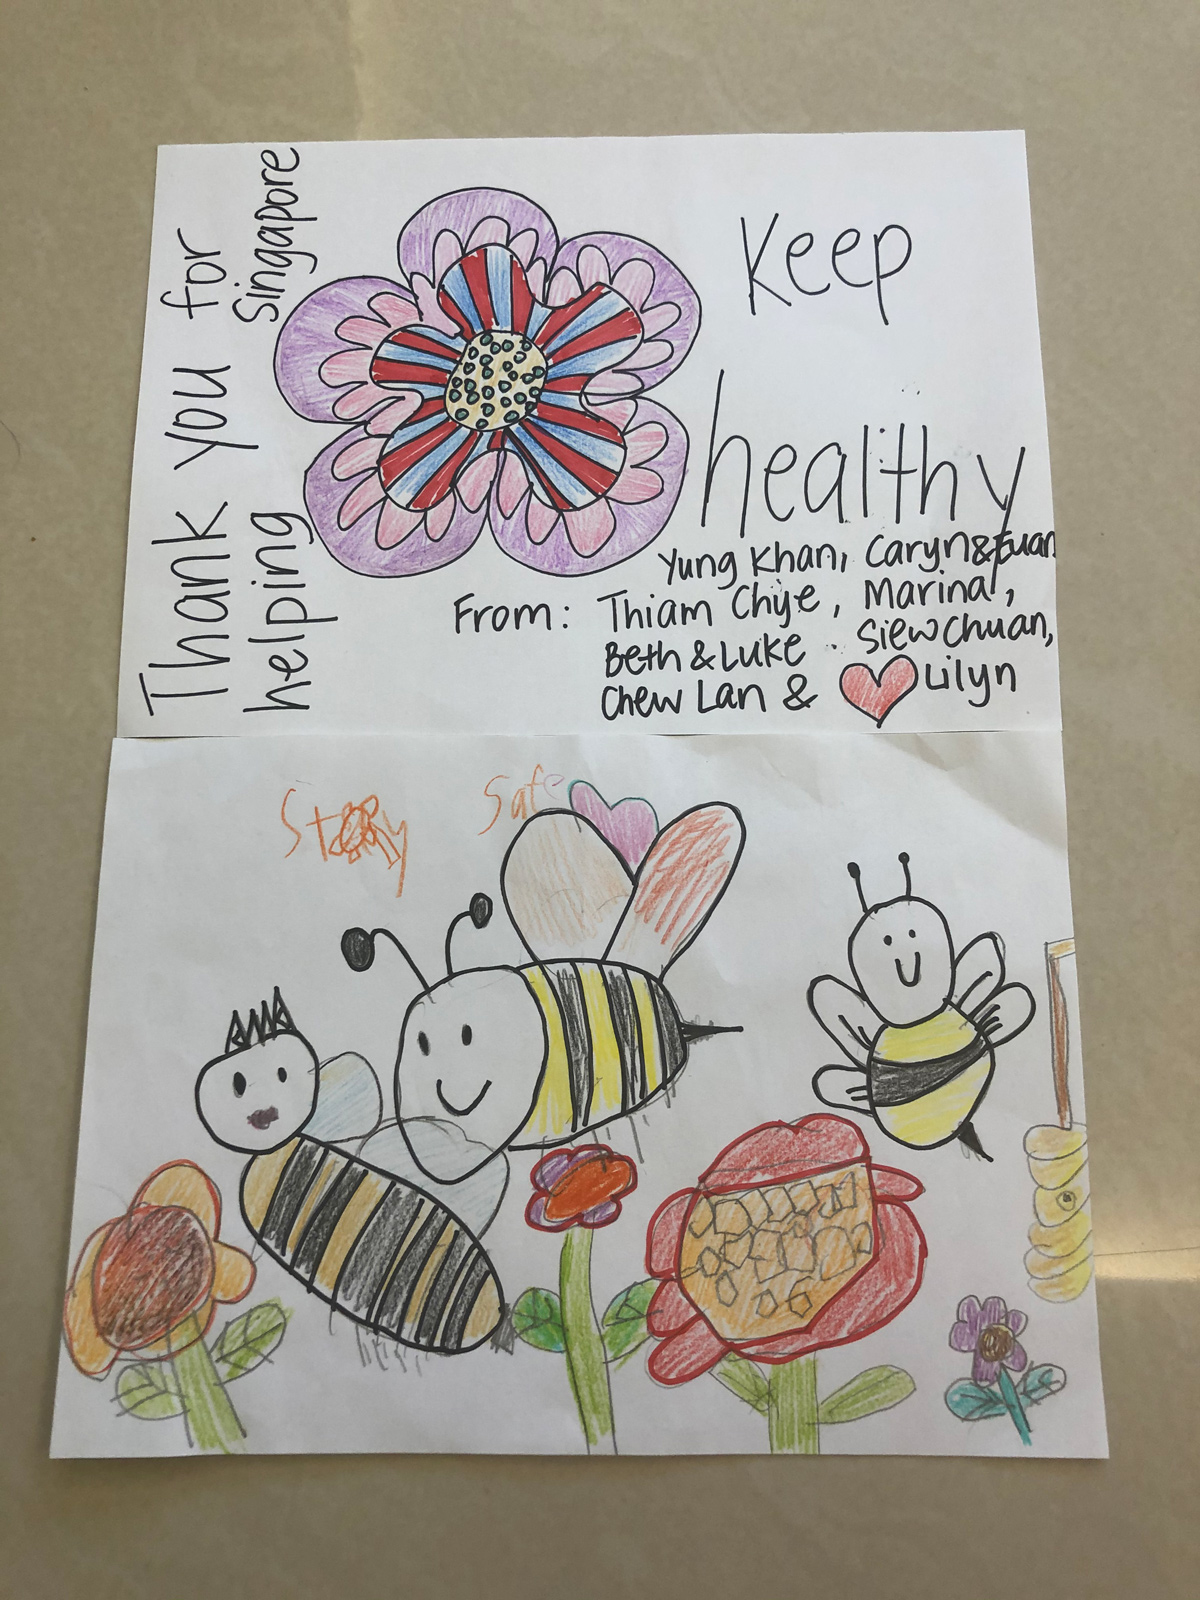 Thank you for
helping Singapore
Keep
healthy
Yung Khan, Caryn & Euan
From: Thiam Chye, Marina,
Beth & Luke . Siew Chuan,
Chew Lan & Lilyn
Stay Safe